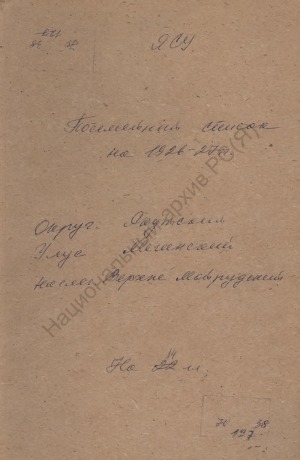 ЯСУ
Посемейный список
на 1926-27г
Округ Якутский
Улус Мегинский
наслег Верхне
На 22 лл.
70 38
127
Национальный архив РС(Я)